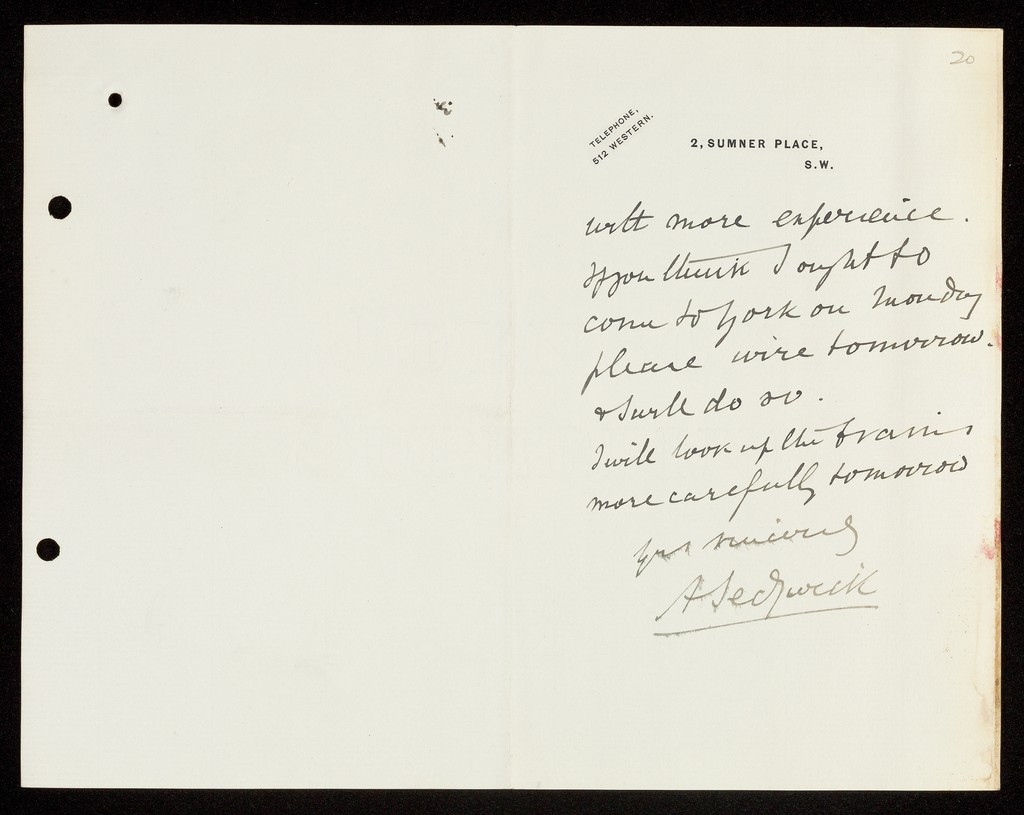 20
TELEPHONE,
512 WESTERN.
2, SUMNER PLACE,
S.W.
with more experience.
If you think I ought to
come to York on Monday
please wire tomorrow.
& I will do so.
I will look up the trains
more carefully tomorrow
Yrs sincerely
A Sedgwick